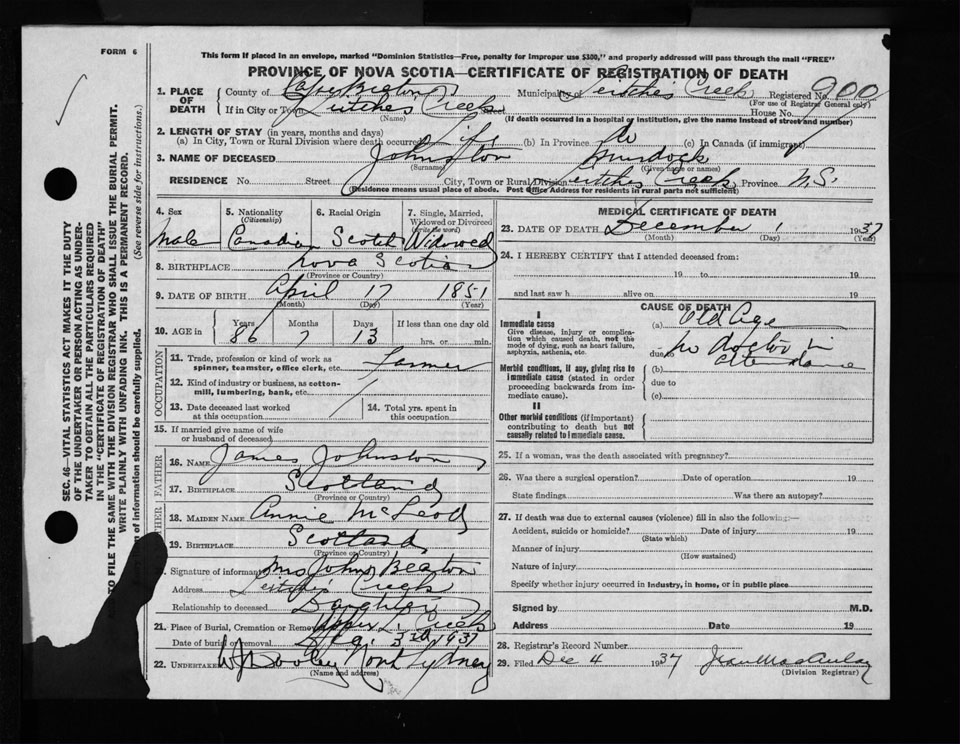 FORM 6
This form if placed in an envelope, marked "Dominion Statistics—Free, penalty for improper use $300," and properly addressed will pass through the mail "FREE"
PROVINCE OF NOVA SCOTIA—CERTIFICATE OF REGISTRATION OF DEATH
1. PLACE OF DEATH County of Cape Breton Municipality of Leitches Creek Registered No. 900
(For use of Registrar General only)
If in City or Town Leitches Creek Street House No.
(Name) (If death occurred in a hospital or institution, give the name instead of street and number)
2. LENGTH OF STAY (in years, months and days)
(a) In City, Town or Rural Division where death occurred Life (b) In Province do (c) In Canada (if immigrant)
3. NAME OF DECEASED Johnston Murdock
(Surname) (Given name or names)
RESIDENCE No. Street City, Town or Rural Division Leitches Creek Province N.S.
(Residence means usual place of abode. Post Office Address for residents in rural parts not sufficient)
4. Sex 5. Nationality (Citizenship) 6. Racial Origin 7. Single, Married, Widowed or Divorced (write the word)
Male Canadian Scotch Widowed
8. BIRTHPLACE Nova Scotia
(Province or Country)
9. DATE OF BIRTH April 17 1851
(Month) (Day) (Year)
10. AGE in Years Months Days If less than one day old
86 7 13 hrs. or min.
OCCUPATION
11. Trade, profession or kind of work as spinner, teamster, office clerk, etc. Farmer
12. Kind of industry or business, as cotton-mill, lumbering, bank, etc.
13. Date deceased last worked at this occupation 14. Total yrs. spent in this occupation
15. If married give name of wife or husband of deceased
FATHER
16. NAME James Johnston
17. BIRTHPLACE Scotland
(Province or Country)
18. MAIDEN NAME Annie McLeod
19. BIRTHPLACE Scotland
(Province or Country)
Signature of informant Mrs John Beaton
Address Leitches Creek
Relationship to deceased Daughter
21. Place of Burial, Cremation or Removal Upper L. Creek
Date of burial or removal Dec. 3rd 1937
22. UNDERTAKER Dooley North Sydney
(Name and address)
MEDICAL CERTIFICATE OF DEATH
23. DATE OF DEATH December 1 1937
(Month) (Day) (Year)
24. I HEREBY CERTIFY that I attended deceased from:
19 to 19
and last saw h alive on 19
CAUSE OF DEATH
I
Immediate cause (a) Old Age
Give disease, injury or complication which caused death, not the mode of dying, such as heart failure, asphyxia, asthenia, etc.
due to No doctor in attendance
Morbid conditions, if any, giving rise to immediate cause (stated in order proceeding backwards from immediate cause).
(b)
due to
(c)
II
Other morbid conditions (if important) contributing to death but not causally related to immediate cause.
25. If a woman, was the death associated with pregnancy?
26. Was there a surgical operation? Date of operation 19
State findings Was there an autopsy?
27. If death was due to external causes (violence) fill in also the following:—
Accident, suicide or homicide? Date of injury 19
(State which)
Manner of injury
(How sustained)
Nature of injury
Specify whether injury occurred in industry, in home, or in public place
Signed by M.D.
Address Date 19
28. Registrar's Record Number
29. Filed Dec 4 1937 Jean MacAulay
(Division Registrar)
SEC. 46—VITAL STATISTICS ACT MAKES IT THE DUTY
OF THE UNDERTAKER OR PERSON ACTING AS UNDER-
TAKER TO OBTAIN ALL THE PARTICULARS REQUIRED
IN THE "CERTIFICATE OF REGISTRATION OF DEATH"
TO FILE THE SAME WITH THE DIVISION REGISTRAR WHO SHALL ISSUE THE BURIAL PERMIT.
WRITE PLAINLY WITH UNFADING INK. THIS IS A PERMANENT RECORD.
of information should be carefully supplied. (See reverse side for instructions.)